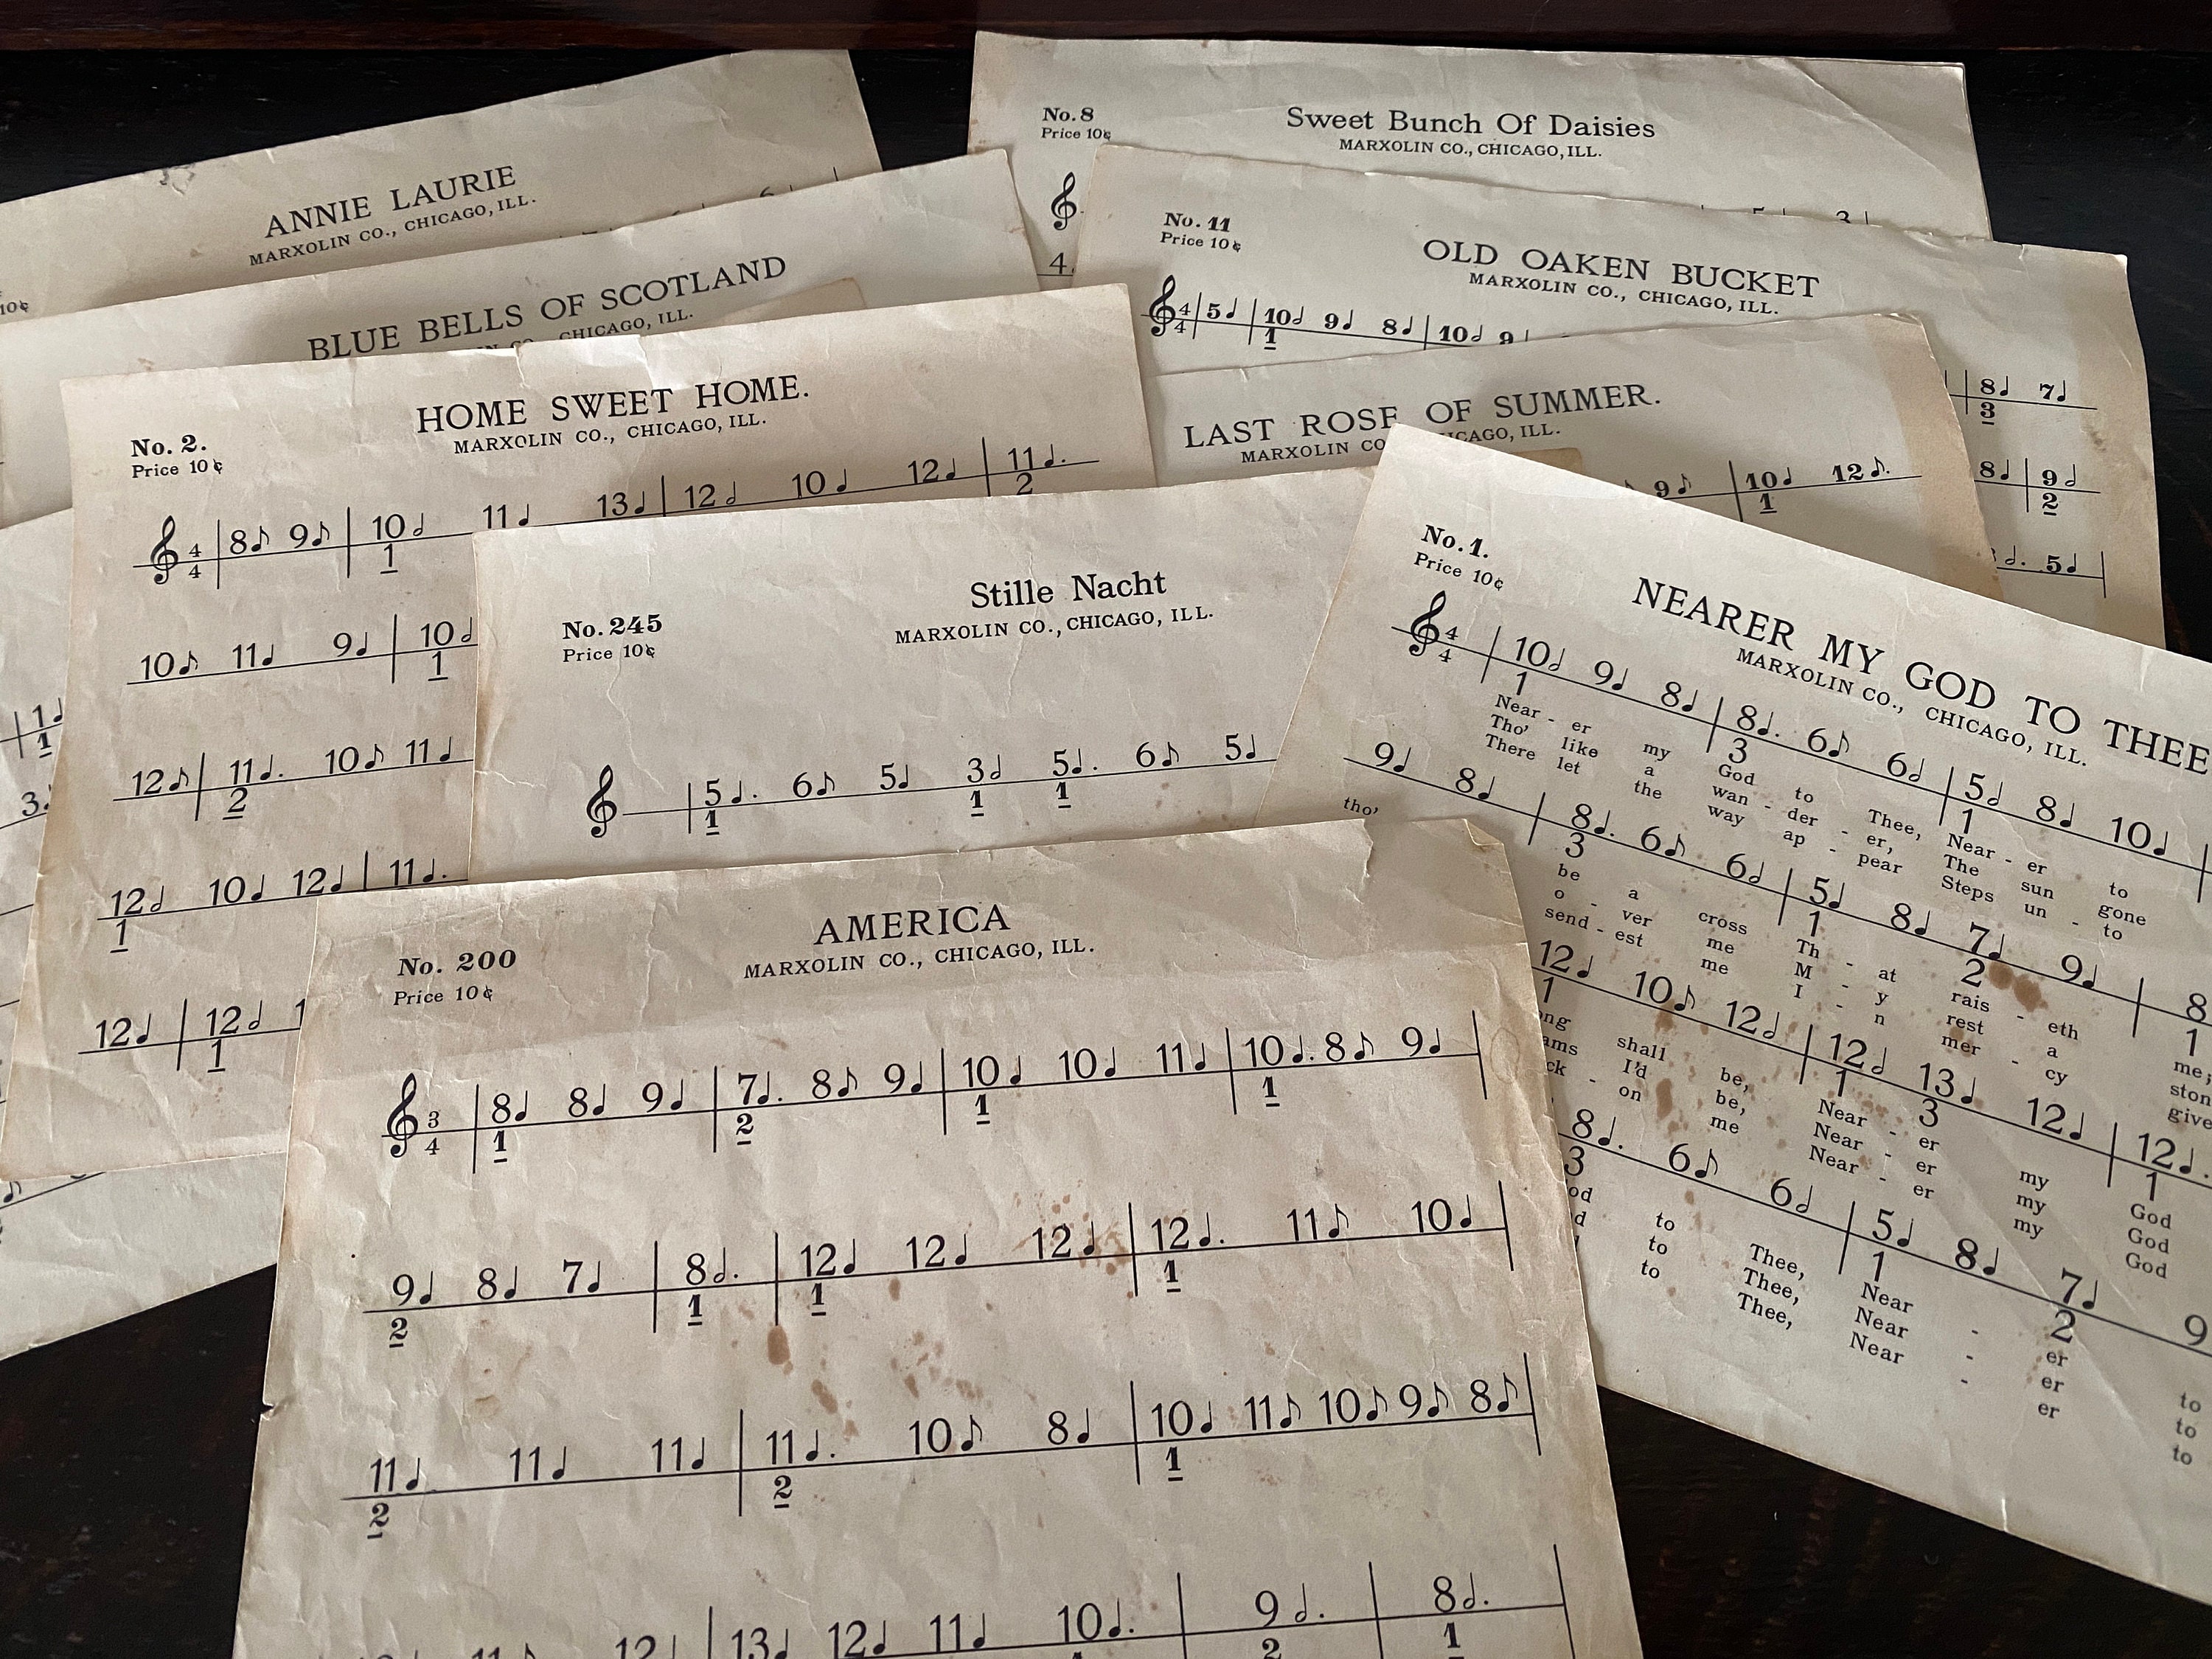 ANNIE LAURIE
MARXOLIN CO., CHICAGO, ILL.
10¢
BLUE BELLS OF SCOTLAND
CHICAGO, ILL.
No. 8
Price 10¢
Sweet Bunch Of Daisies
MARXOLIN CO., CHICAGO, ILL.
4
5 3
No. 11
Price 10¢
OLD OAKEN BUCKET
MARXOLIN CO., CHICAGO, ILL.
4/4 5 10 9 8 10 9
1
8 7
3
8 9
2
5
LAST ROSE OF SUMMER.
MARXOLIN CO., CHICAGO, ILL.
9 10 12
1
HOME SWEET HOME.
MARXOLIN CO., CHICAGO, ILL.
No. 2.
Price 10¢
4/4 8 9 10 11 13 12 10 12 11
1 2
10 11 9 10
1
12 11 10 11
2
12 10 12 11
1
12 12 1
1
1
1
3
Stille Nacht
MARXOLIN CO., CHICAGO, ILL.
No. 245
Price 10¢
5 6 5 3 5 6 5
1 1 1
No. 1.
Price 10¢
NEARER MY GOD TO THEE
MARXOLIN CO., CHICAGO, ILL.
4/4 10 9 8 8 6 6 5 8 10
1 3 1
Near - er my God to Thee, Near - er to
Tho' like a wan - der - er, The sun gone
There let the way ap - pear Steps un - to
9 8 8 6 6 5 8 7 9 8
3 1 2 1
tho' be a cross Th - at rais - eth me;
o - ver me M - y rest a ston
send - est me I - n mer - cy give
12 10 12 12 13 12 12
1 1 3 1
ong shall be, Near - er my God
ams I'd be, Near - er my God
ck - on me Near - er my God
8 6 6 5 8 7 9
3 1 2
od to Thee, Near - er to
d to Thee, Near - er to
to Thee, Near - er to
AMERICA
MARXOLIN CO., CHICAGO, ILL.
No. 200
Price 10¢
3/4 8 8 9 7 8 9 10 10 11 10 8 9
1 2 1 1
9 8 7 8 12 12 12 12 11 10
2 1 1 1
11 11 11 11 10 8 10 11 10 9 8
2 2 1
11 12 13 12 11 10 9 8
2 1